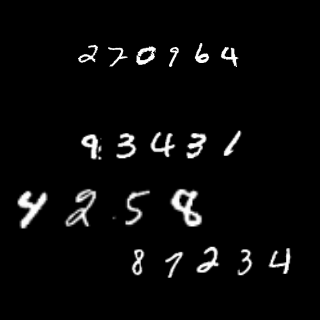 270964
93431
4258
87234